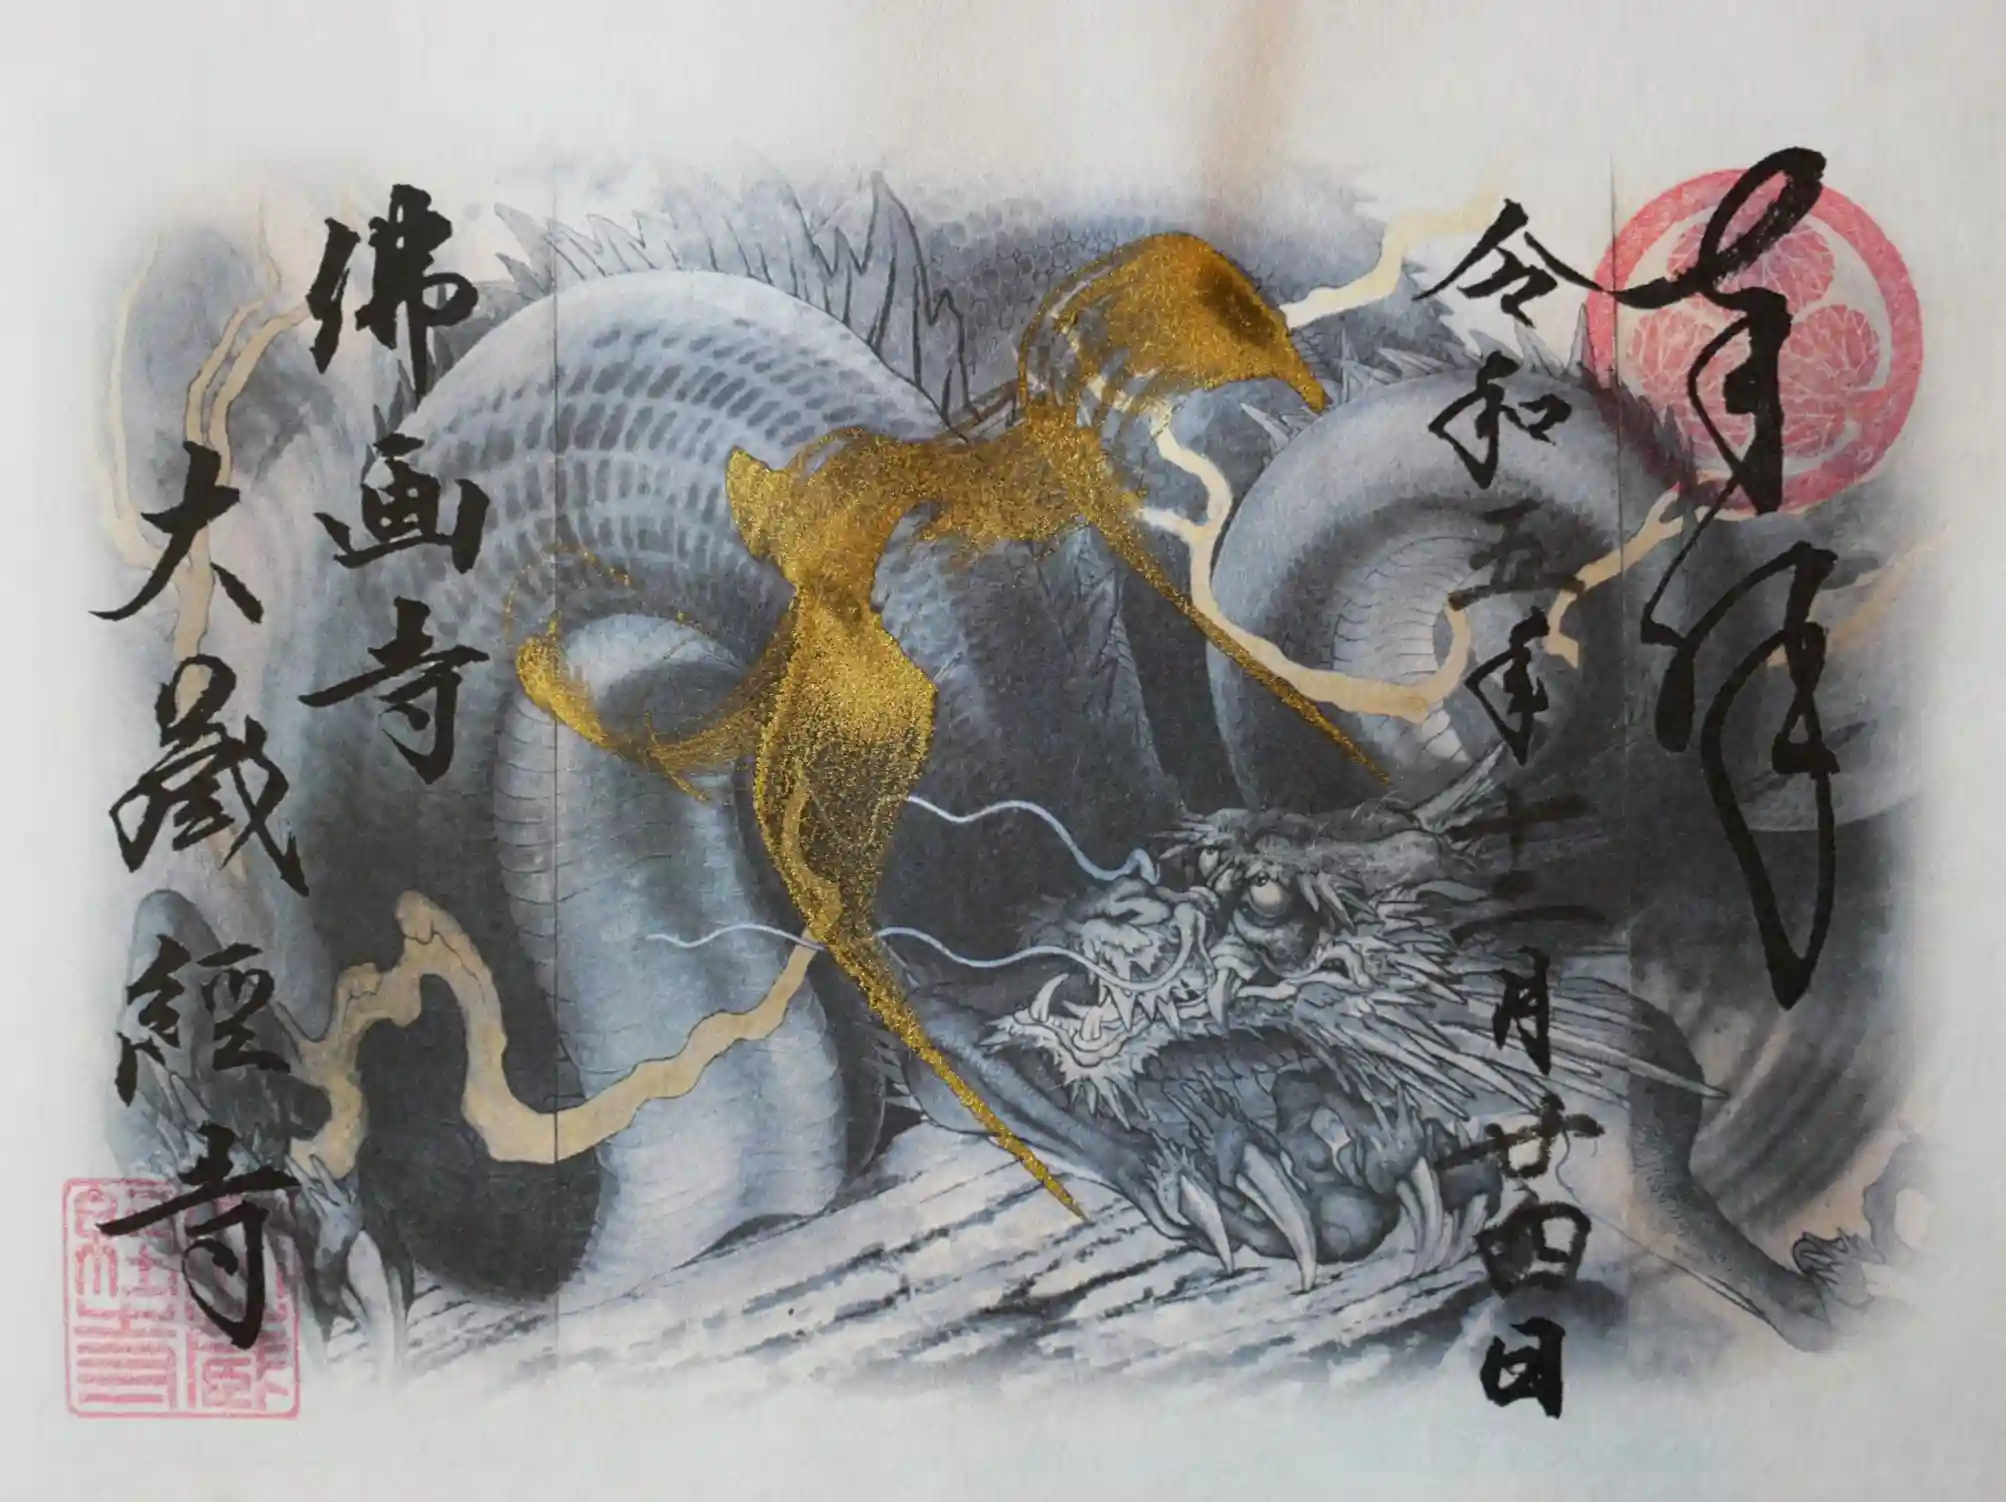 奉拝
令和五年十二月廿四日
佛画寺
大藏經寺